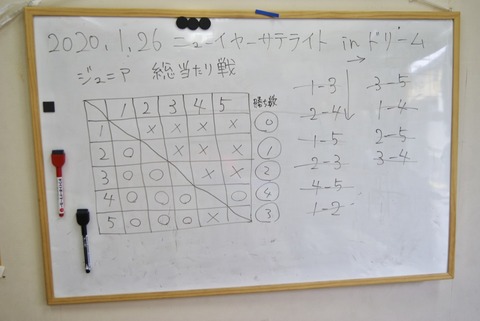 2020.1.26 ニューイヤーサテライト in ドリーム
ジュニア 総当たり戦
1 2 3 4 5 勝ち数
1 × × × × 0
2 ○ × × × 1
3 ○ ○ × × 2
4 ○ ○ ○ ○ 4
5 ○ ○ ○ × 3
1-3
2-4
1-5
2-3
4-5
1-2
3-5
1-4
2-5
3-4